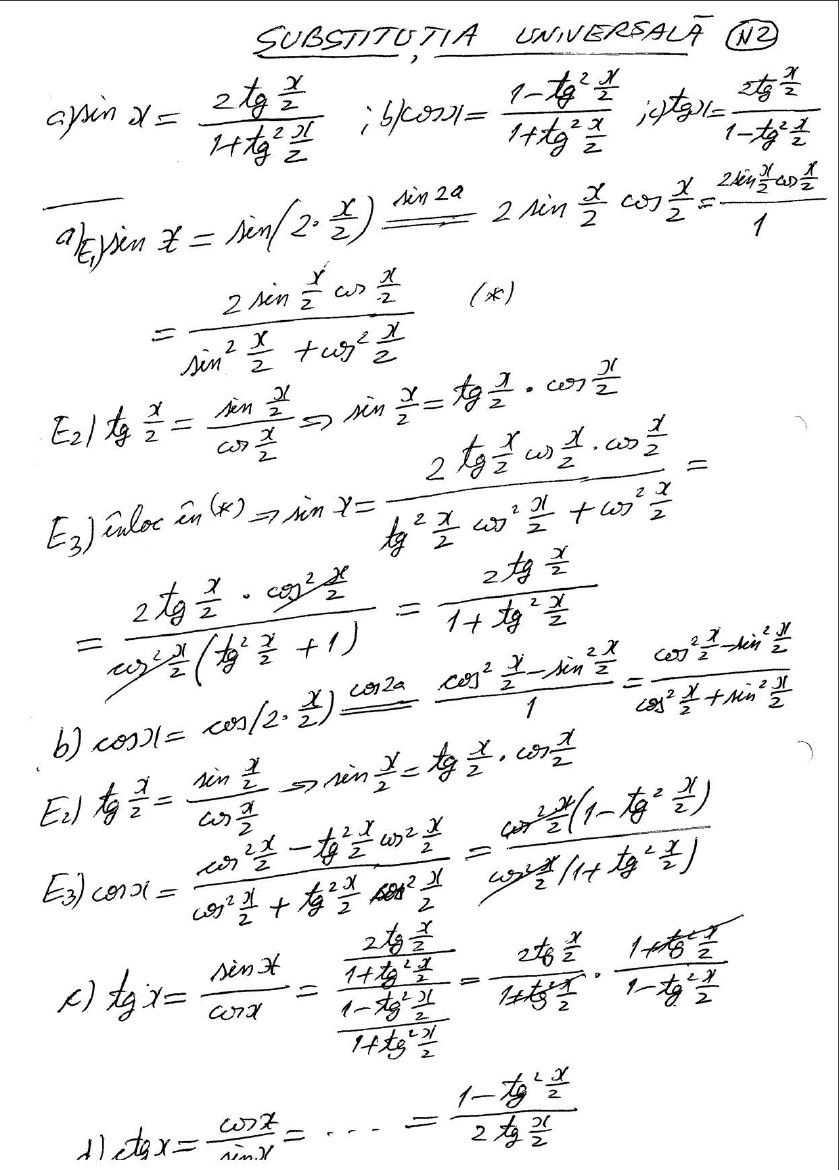 SUBSTITUȚIA UNIVERSALĂ N2
a) sin x = \frac{2 tg \frac{x}{2}}{1 + tg² \frac{x}{2}} ; b) cos x = \frac{1 - tg² \frac{x}{2}}{1 + tg² \frac{x}{2}} ; c) tg x = \frac{2 tg \frac{x}{2}}{1 - tg² \frac{x}{2}}
a) E₁) sin x = sin(2 · \frac{x}{2}) \overset{sin 2a}{=} 2 sin \frac{x}{2} cos \frac{x}{2} = \frac{2 sin \frac{x}{2} cos \frac{x}{2}}{1}
= \frac{2 sin \frac{x}{2} cos \frac{x}{2}}{sin² \frac{x}{2} + cos² \frac{x}{2}} (*)
E₂) tg \frac{x}{2} = \frac{sin \frac{x}{2}}{cos \frac{x}{2}} ⇒ sin \frac{x}{2} = tg \frac{x}{2} · cos \frac{x}{2}
E₃) înloc în (*) ⇒ sin x = \frac{2 tg \frac{x}{2} cos \frac{x}{2} · cos \frac{x}{2}}{tg² \frac{x}{2} cos² \frac{x}{2} + cos² \frac{x}{2}} =
= \frac{2 tg \frac{x}{2} · cos² \frac{x}{2}}{cos² \frac{x}{2} (tg² \frac{x}{2} + 1)} = \frac{2 tg \frac{x}{2}}{1 + tg² \frac{x}{2}}
b) cos x = cos(2 · \frac{x}{2}) \overset{cos 2a}{=} \frac{cos² \frac{x}{2} - sin² \frac{x}{2}}{1} = \frac{cos² \frac{x}{2} - sin² \frac{x}{2}}{cos² \frac{x}{2} + sin² \frac{x}{2}}
E₂) tg \frac{x}{2} = \frac{sin \frac{x}{2}}{cos \frac{x}{2}} ⇒ sin \frac{x}{2} = tg \frac{x}{2} · cos \frac{x}{2}
E₃) cos x = \frac{cos² \frac{x}{2} - tg² \frac{x}{2} cos² \frac{x}{2}}{cos² \frac{x}{2} + tg² \frac{x}{2} cos² \frac{x}{2}} = \frac{cos² \frac{x}{2} (1 - tg² \frac{x}{2})}{cos² \frac{x}{2} (1 + tg² \frac{x}{2})}
c) tg x = \frac{sin x}{cos x} = \frac{\frac{2 tg \frac{x}{2}}{1 + tg² \frac{x}{2}}}{\frac{1 - tg² \frac{x}{2}}{1 + tg² \frac{x}{2}}} = \frac{2 tg \frac{x}{2}}{1 + tg² \frac{x}{2}} · \frac{1 + tg² \frac{x}{2}}{1 - tg² \frac{x}{2}}
d) ctg x = \frac{cos x}{sin x} = .... = \frac{1 - tg² \frac{x}{2}}{2 tg \frac{x}{2}}